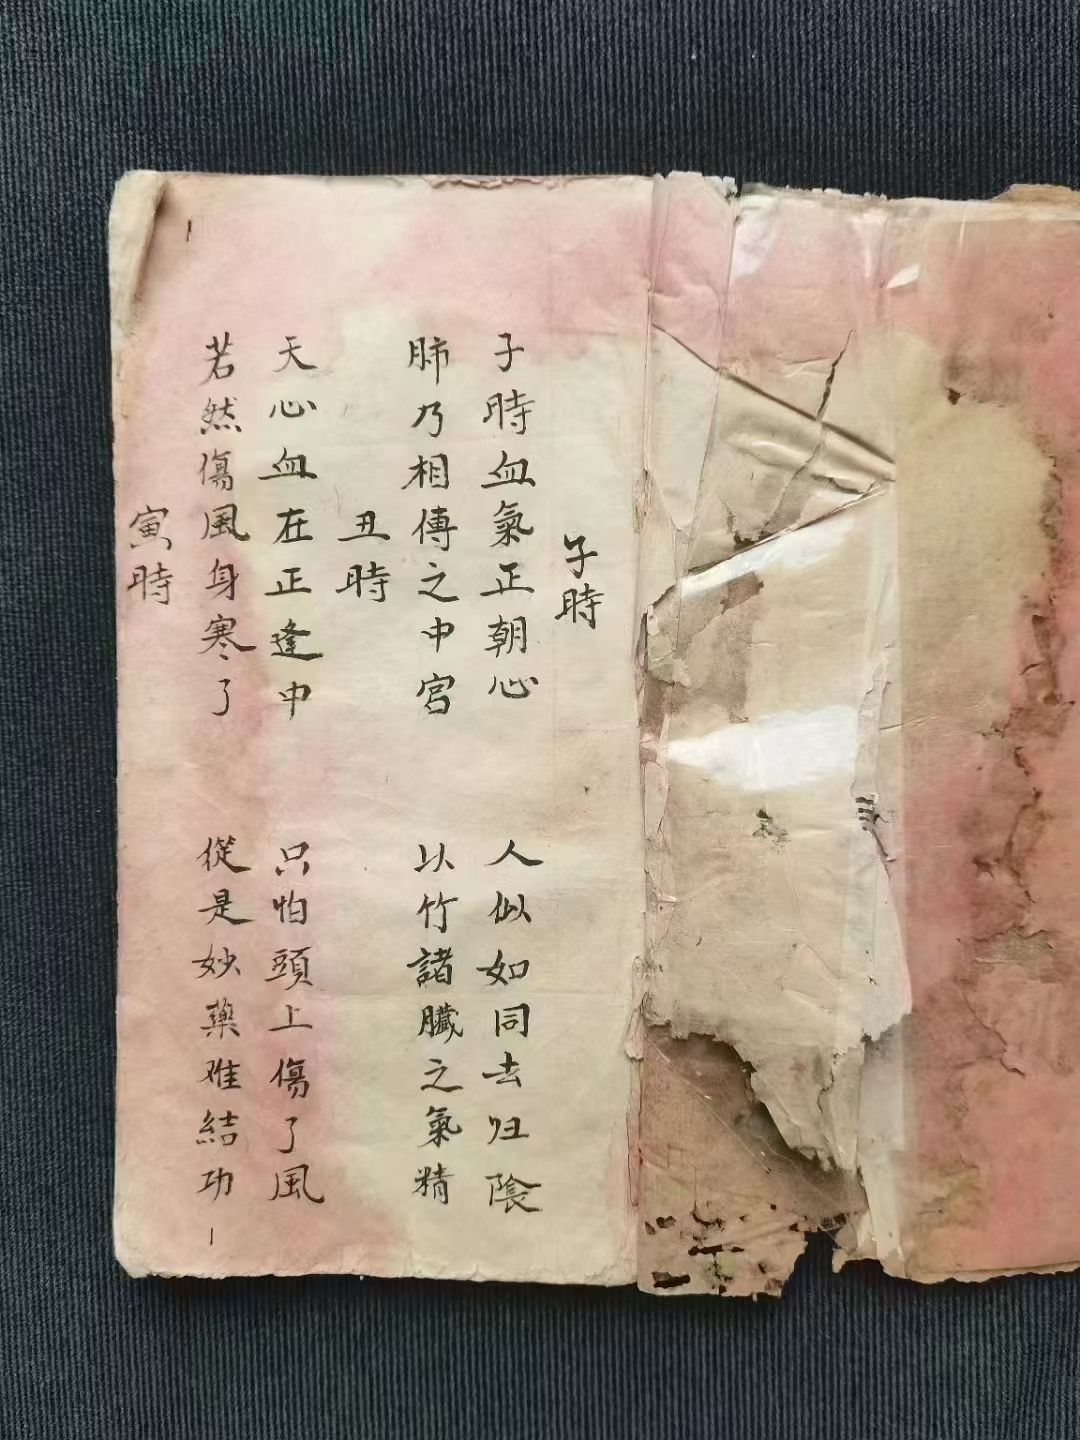 子時
子時血氣正朝心 人似如同去归陰
肺乃相傳之中宮 以竹諸臟之氣精
丑時
天心血在正逢中 只怕頭上傷了風
若然傷風身寒了 從是妙藥难結功
寅時